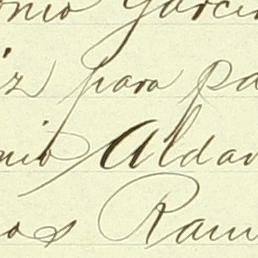 onio Garcia
iz para pa
nio Aldan
os Ram